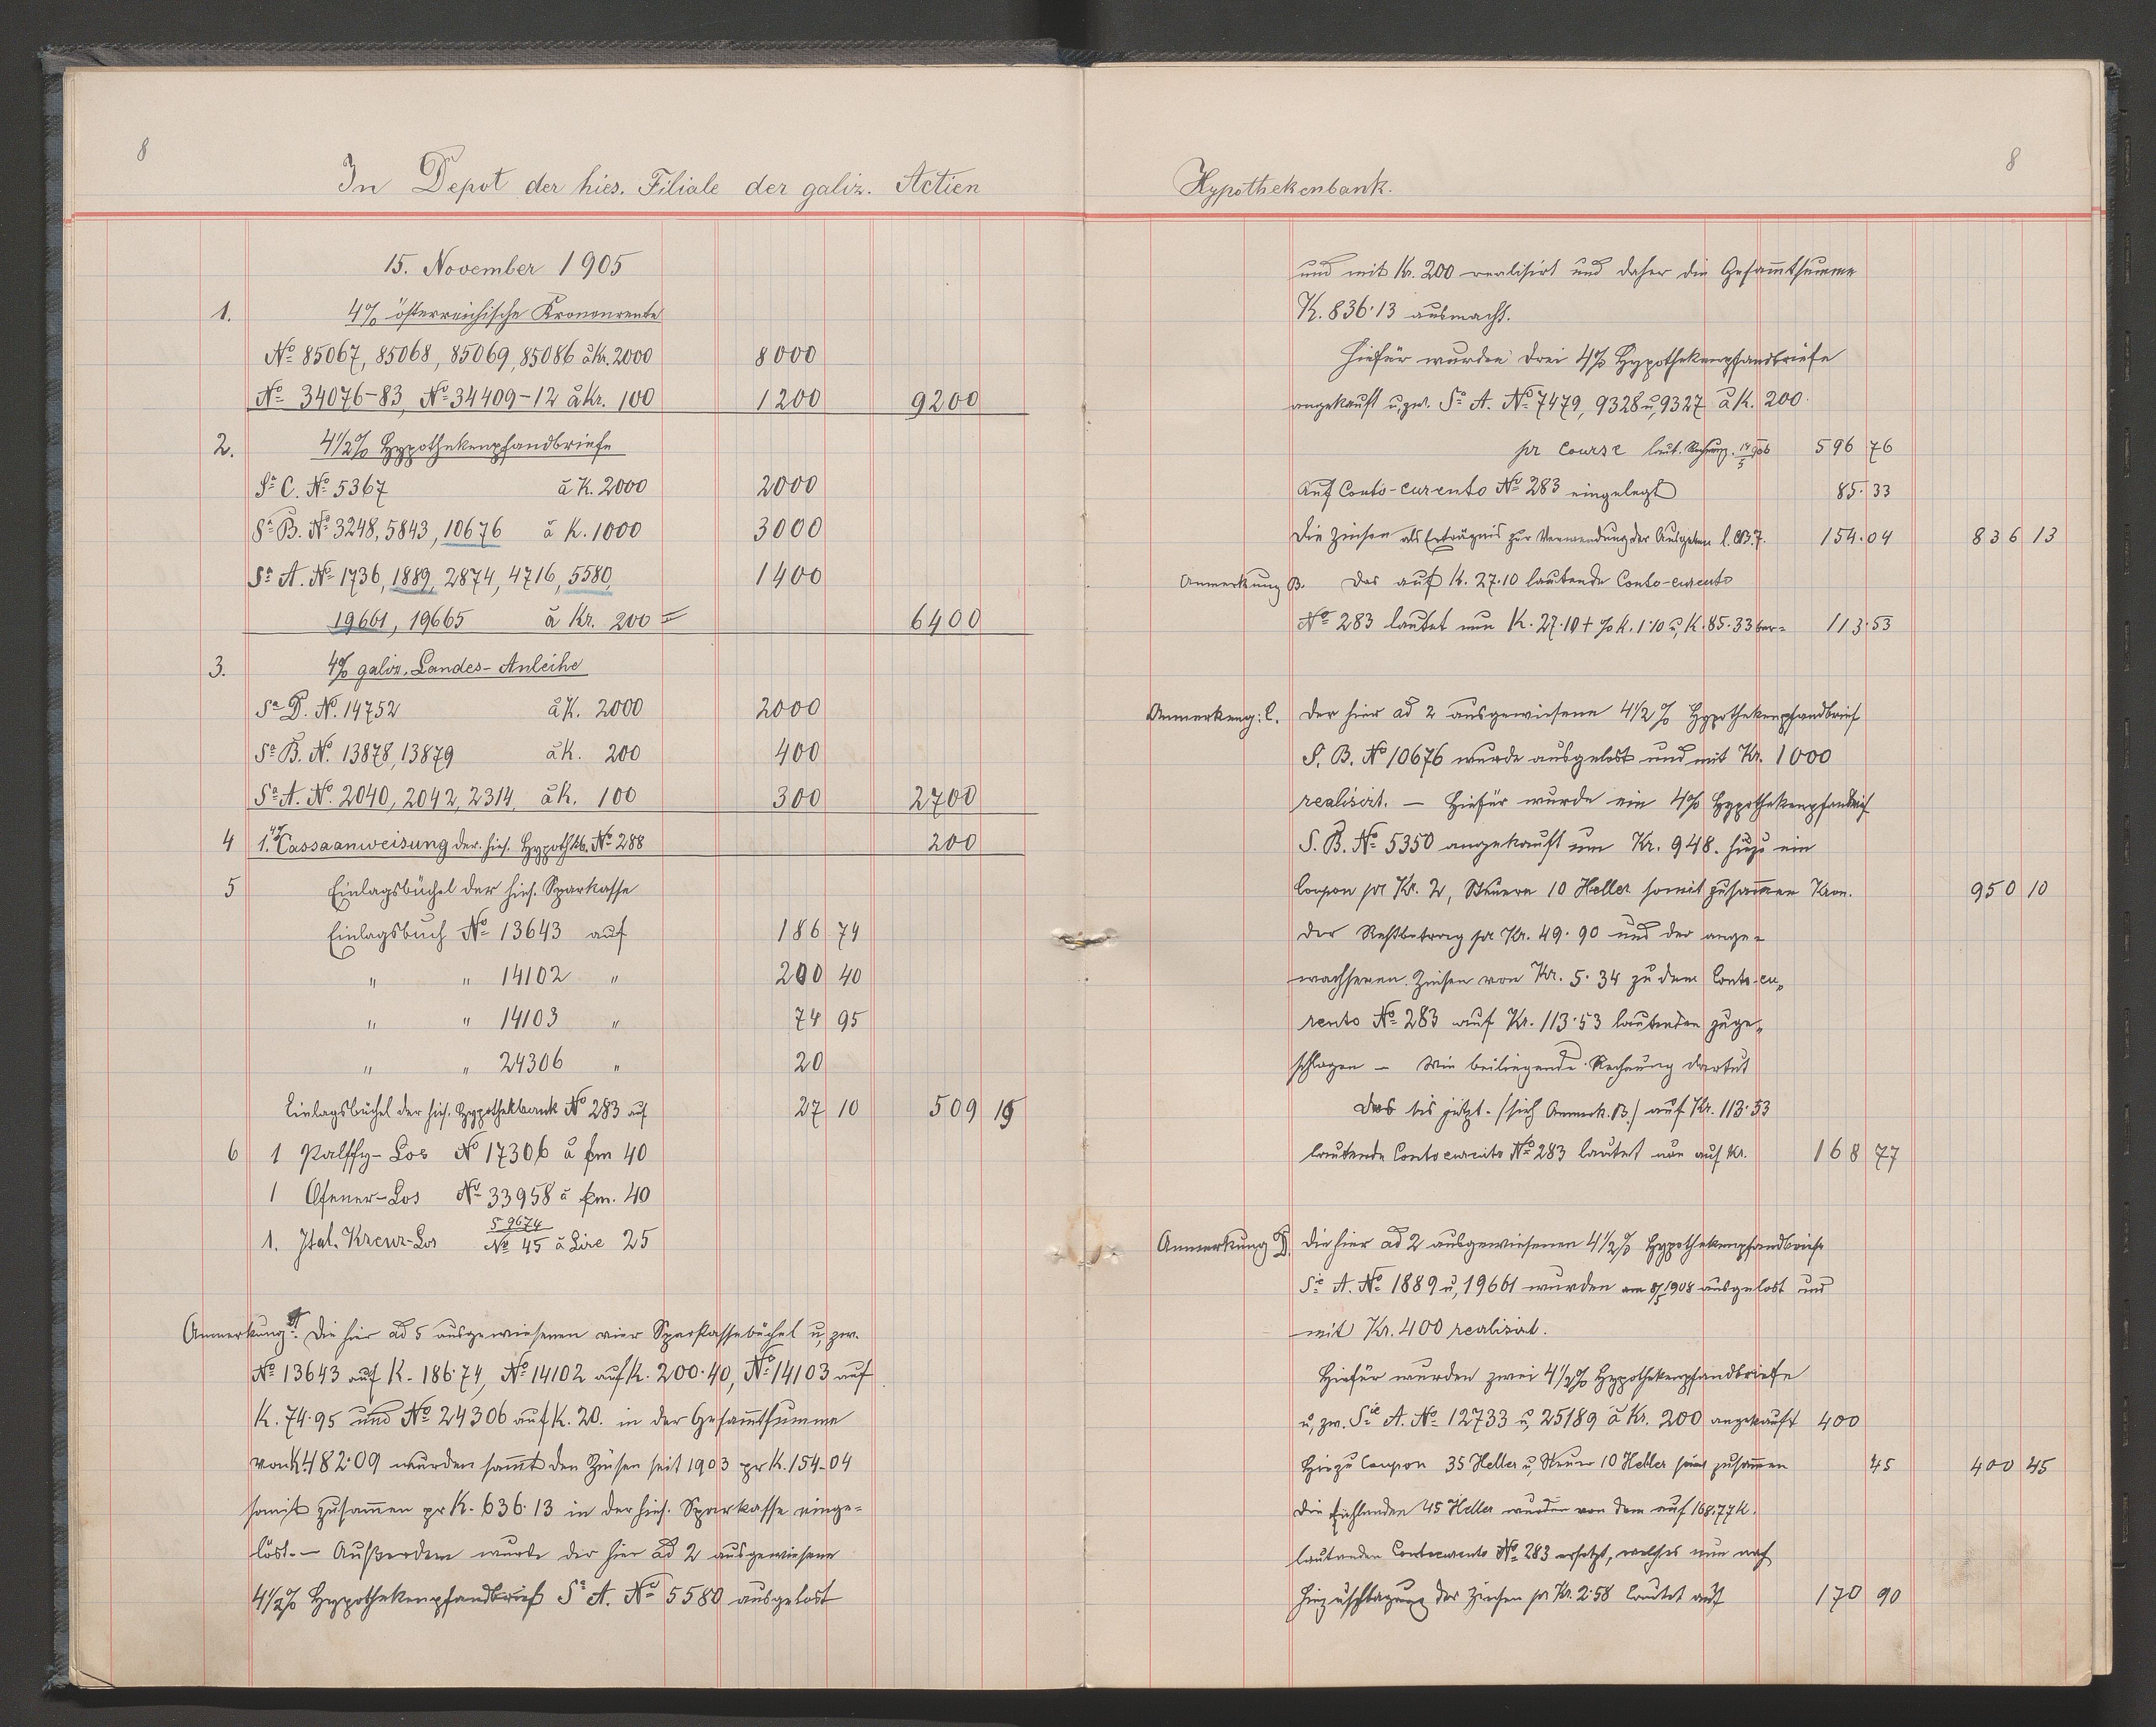 8
In Depot der hies. Filiale der galiz. Actien
15. November 1905
1. 4% österreichische Kronenrente
No 85067, 85068, 85069, 85086 à Kr. 2000 8000
No 34076-83, No 34409-12 à Kr. 100 1200 9200
2. 4½% Hypothekenpfandbriefe
Sa C. No 5367 à K. 2000 2000
Sa B. No 3248, 5843, 10676 à K. 1000 3000
Sa A. No 1736, 1889, 2874, 4716, 5580, 1400
19661, 19665 à Kr. 200 = 6400
3. 4% galiz. Landes-Anleihe
Sa D. No. 14752 à K. 2000 2000
Sa B. No. 13878, 13879 à K. 200 400
Sa A. No. 2040, 2042, 2314, à K. 100 300 2700
4 1. 4% Cassaanweisung der hies. Hypothkb. No 288 200
5 Einlagsbüchel der hies. Sparkasse
Einlagsbuch No 13643 auf 186 74
" " 14102 " 200 40
" " 14103 " 74 95
" " 24306 " 20
Einlagsbüchel der hies. Hypothekbank No 283 auf 27 10 509 19
6 1 Palffy-Los No 17306 à fm 40
1 Ofener-Los No 33958 à fm. 40
1. Ital. Kreuz-Los S 9674 No 45 à Lire 25
Anmerkung A. Die hier ad 5 ausgewiesenen vier Sparkassebüchel u. zw.
No 13643 auf K. 186·74, No 14102 auf K. 200·40, No 14103 auf
K. 74·95 und No 24306 auf K. 20. in der Gesammtsumme
von K. 482·09 wurden sammt den Zinsen seit 1903 pr K. 154·04
somit zusammen pr K. 636·13 in der hies. Sparkasse einge=
löst. — Außerdem wurde der hier ad 2 ausgewiesene
4½% Hypothekenpfandbrief Sa A. No 5580 ausgelost
8
Hypothekenbank.
und mit Kr. 200 realisirt und daher die Gesammtsumme
K. 836·13 ausmacht.
Hiefür wurden drei 4% Hypothekenpfandbriefe
angekauft u. zw. Sa A. No 7479, 9328 u. 9327 à K. 200.
pr Course laut. Rechnung. 14/5 906 596 76
auf Conto-curento No 283 eingelegt 85·33
die Zinsen als Erträgnis zur Verwendung der Ausgaben 154·04 836 13
Anmerkung B. Das auf K. 27·10 lautende Conto-curento
No 283 lautet nun K. 27·10 + % K. 1·10 u. K. 85·33 ber= 113·53
Anmerkung: C. Der hier ad 2 ausgewiesene 4½% Hypothekenpfandbrief
S. B. No 10676 wurde ausgelost und mit Kr. 1000
realisirt. — Hiefür wurde ein 4% Hypothekenpfandbrief
S. B. No 5350 angekauft um Kr. 948. hiezu ein
Coupon pr Kr. 2, Steuern 10 Heller somit zusammen Kron. 950 10
der Restbetrag pr Kr. 49·90 und der ange=
wachsenen Zinsen von Kr. 5·34 zu dem Conto-cu„
rento No 283 auf Kr. 113·53 lautenden zuge„
schlagen — Wie beiliegende Rechnung dartut
Das bis jetzt. (sieh Anmerk. B.) auf Kr. 113·53
lautende Contocurento No 283 lautet nun auf Kr. 168 77
Anmerkung D. Die hier ad 2 ausgewiesenen 4½% Hypothekenpfandbriefe
Sie A. No 1889 u, 19661 wurden am 8/5 1908 ausgelost und
mit Kr. 400 realisirt.
Hiefür wurden zwei 4½% Hypothekenpfandbriefe
u, zw. Sie A. No 12733 u, 25189 à Kr. 200 angekauft 400
Hiezu Coupon 35 Heller u, Steuer 10 Heller sind zusammen 45 400 45
Die fehlenden 45 Heller wurden von dem auf 168·77 K.
lautenden Contocurento No 283 ersetzt, welches nun nach
Hinzuschlagung der Zinsen pr Kr. 2·58 lautet auf 170 90